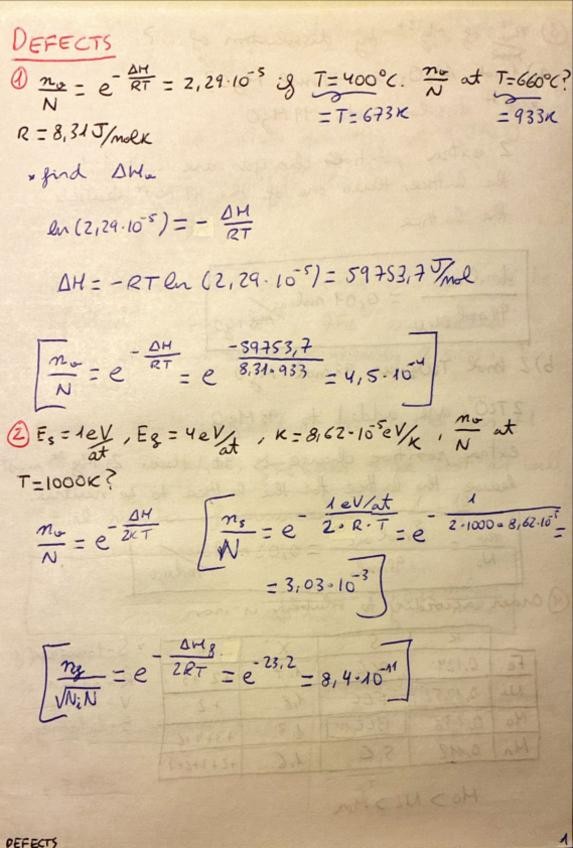 DEFECTS
① nᵥ/N = e^(-ΔH/RT) = 2,29·10⁻⁵ if T=400°C. nᵥ/N at T=660°C?
=T=673K =933K
R=8,31J/molK
* find ΔHᵥ
ln(2,29·10⁻⁵) = - ΔH/RT
ΔH = -RT ln (2,29·10⁻⁵) = 59753,7 J/mol
[nᵥ/N = e^(-ΔH/RT) = e^(-59753,7/(8,31·933)) = 4,5·10⁻⁴]
② Eₛ=1eV/at, E_g=4eV/at, K=8,62·10⁻⁵eV/K, nᵥ/N at
T=1000K?
nᵥ/N = e^(-ΔH/2KT) [nₛ/N = e^(-1eV/at/(2·R·T)) = e^(-1/(2·1000·8,62·10⁻⁵)) =
= 3,03·10⁻³]
[n_g/√NᵢN = e^(-ΔH_g/2RT) = e^(-23,2) = 8,4·10⁻¹¹]
DEFECTS 1